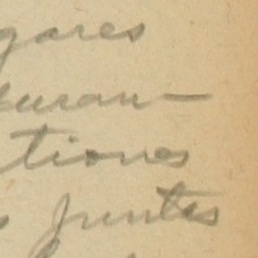 gares
suran-
tiones
s juntas